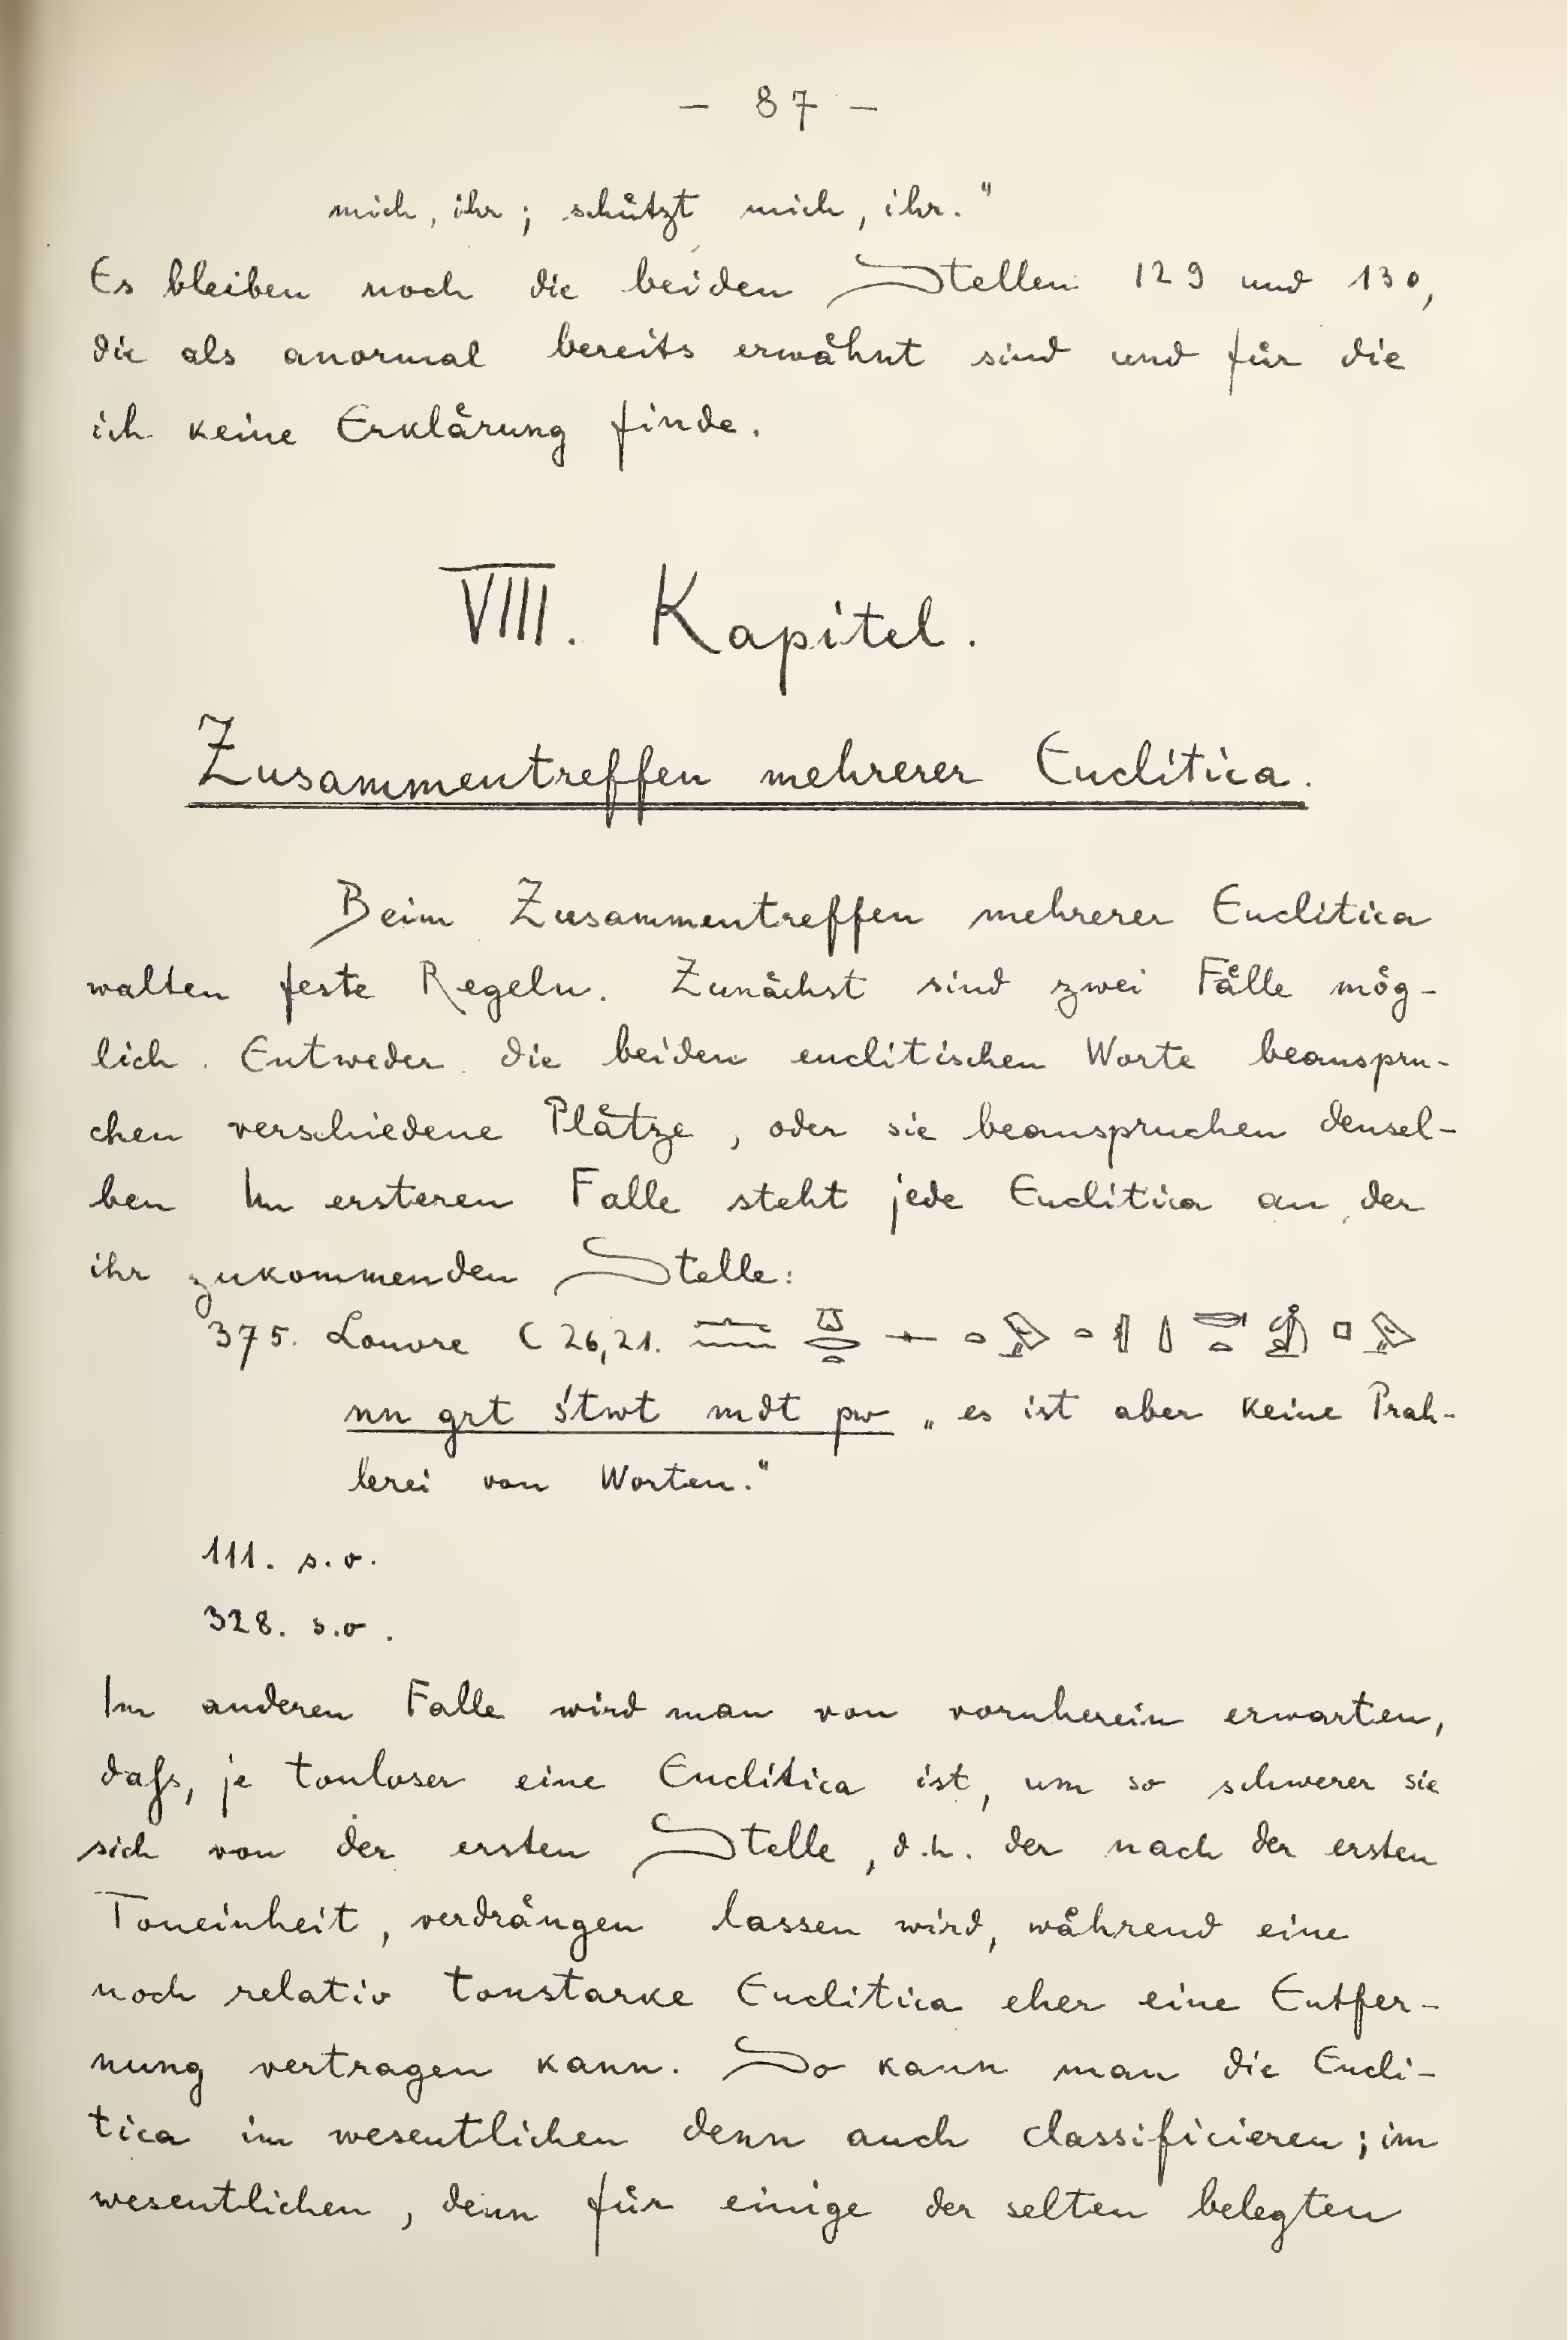 - 87 -
mich, ihr; schützt mich, ihr."
Es bleiben noch die beiden Stellen 129 und 130,
die als anormal bereits erwähnt sind und für die
ich keine Erklärung finde.
VIII. Kapitel.
Zusammentreffen mehrerer Enclitica.
Beim Zusammentreffen mehrerer Enclitica
walten feste Regeln. Zunächst sind zwei Fälle mög-
lich. Entweder die beiden enclitischen Worte beanspru-
chen verschiedene Plätze, oder sie beanspruchen densel-
ben Im ersteren Falle steht jede Enclitica an der
ihr zukommenden Stelle:
375. Louvre C 26,21.
nn grt śtwt mdt pw „es ist aber keine Prah-
lerei von Worten."
111. s.o.
328. s.o.
Im anderen Falle wird man von vornherein erwarten,
dafs, je tonloser eine Enclitica ist, um so schwerer sie
sich von der ersten Stelle, d.h. der nach der ersten
Toneinheit, verdrängen lassen wird, während eine
noch relativ tonstarke Enclitica eher eine Entfer-
nung vertragen kann. So kann man die Encli-
tica im wesentlichen denn auch classificieren; im
wesentlichen, denn für einige der selten belegten